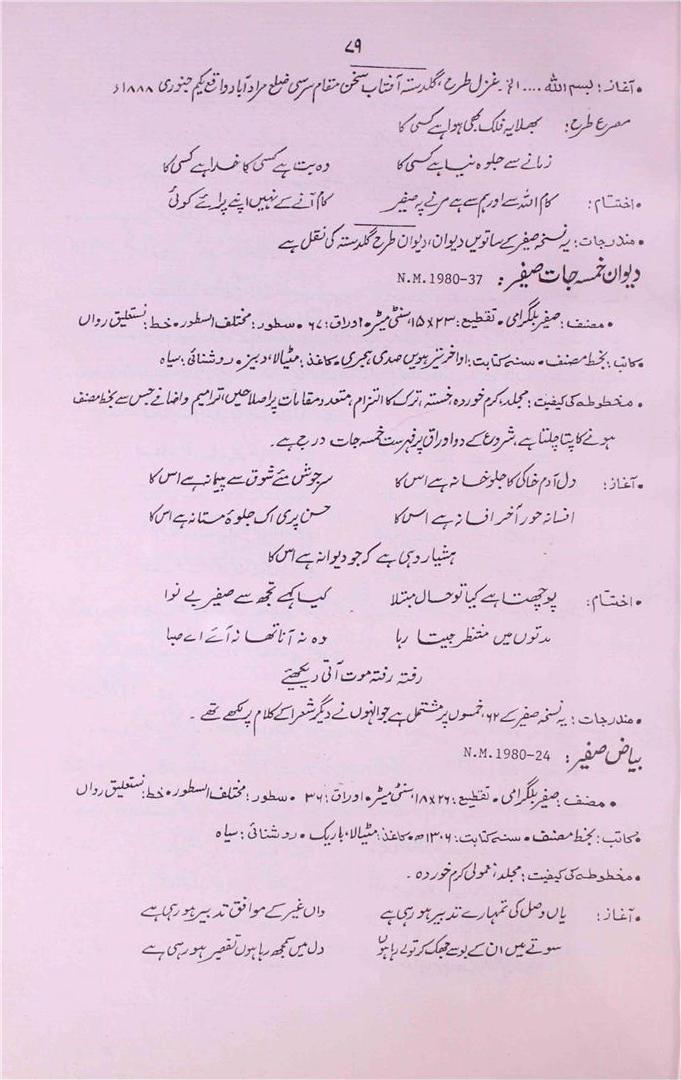 ۷۹
• آغاز: بسم اللہ .... الخ۔ غزل طرح، گلدستہ آفتاب سخن مقام سرسی ضلع مراد آباد واقع یکم جنوری ۱۸۸۸ء
مصرع طرح: بھلا یہ فلک بھی ہوا ہے کسی کا
زمانے سے جلوہ نیا ہے کسی کا وہ بت ہے کسی کا خدا ہے کسی کا
• اختتام: کام اللہ سے اور ہم سے ہے مرنے پر صفیر کام آنے کے نہیں اپنے پرائے کوئی
• مندرجات: یہ نسخہ صفیر کے ساتویں دیوان، دیوان طرح گلدستہ کی نقل ہے
دیوان خمسہ جات صفیر: N.M.1980-37
• مصنف: صفیر بلگرامی • تقطیع: ۲۳×۱۵ سنٹی میٹر • اوراق: ۶۷ • سطور: مختلف السطور • خط: نستعلیق رواں
• کاتب: بخط مصنف • سنہ کتابت: اواخر تیرہویں صدی ہجری • کاغذ: مٹیالا، دبیز • روشنائی: سیاہ
• مخطوطہ کی کیفیت: مجلد، کرم خوردہ، خستہ، ترک کا التزام، متعدد مقامات پر اصلاحیں، ترامیم و اضافے جس سے بخط مصنف
ہونے کا پتا چلتا ہے، شروع کے دو اوراق پر فہرست خمسہ جات درج ہے۔
• آغاز: دل آدم خاکی کا جلو خانہ ہے اس کا سرجوش مئے شوق سے پیمانہ ہے اس کا
افسانہ حور آخر افسانہ ہے اس کا حسن پری اک جلوۂ مستانہ ہے اس کا
ہشیار وہی ہے کہ جو دیوانہ ہے اس کا
• اختتام: پوچھتا ہے کیا تو حال مبتلا کیا کہے تجھ سے صفیر بے نوا
مدتوں میں منتظر جیتا رہا وہ نہ آنا تھا نہ آئے اے صبا
رفتہ رفتہ موت آتی دیکھیے
• مندرجات: یہ نسخہ صفیر کے ۶۲، خمسوں پر مشتمل ہے جو انہوں نے دیگر شعرا کے کلام پر لکھے تھے۔
بیاض صفیر: N.M.1980-24
• مصنف: صفیر بلگرامی • تقطیع: ۲۶×۱۸ سنٹی میٹر • اوراق: ۳۶ • سطور: مختلف السطور • خط: نستعلیق رواں
• کاتب: بخط مصنف • سنہ کتابت: ۱۳۰۶ھ • کاغذ: مٹیالا، باریک • روشنائی: سیاہ
• مخطوطہ کی کیفیت: مجلد، معمولی کرم خوردہ۔
• آغاز: یاں وصل کی تمہارے تدبیر ہو رہی ہے واں غیر کے موافق تدبیر ہو رہی ہے
سوتے میں ان کے بوسے جھک کر تو لے رہا ہوں دل میں سمجھ رہا ہوں تقصیر ہو رہی ہے